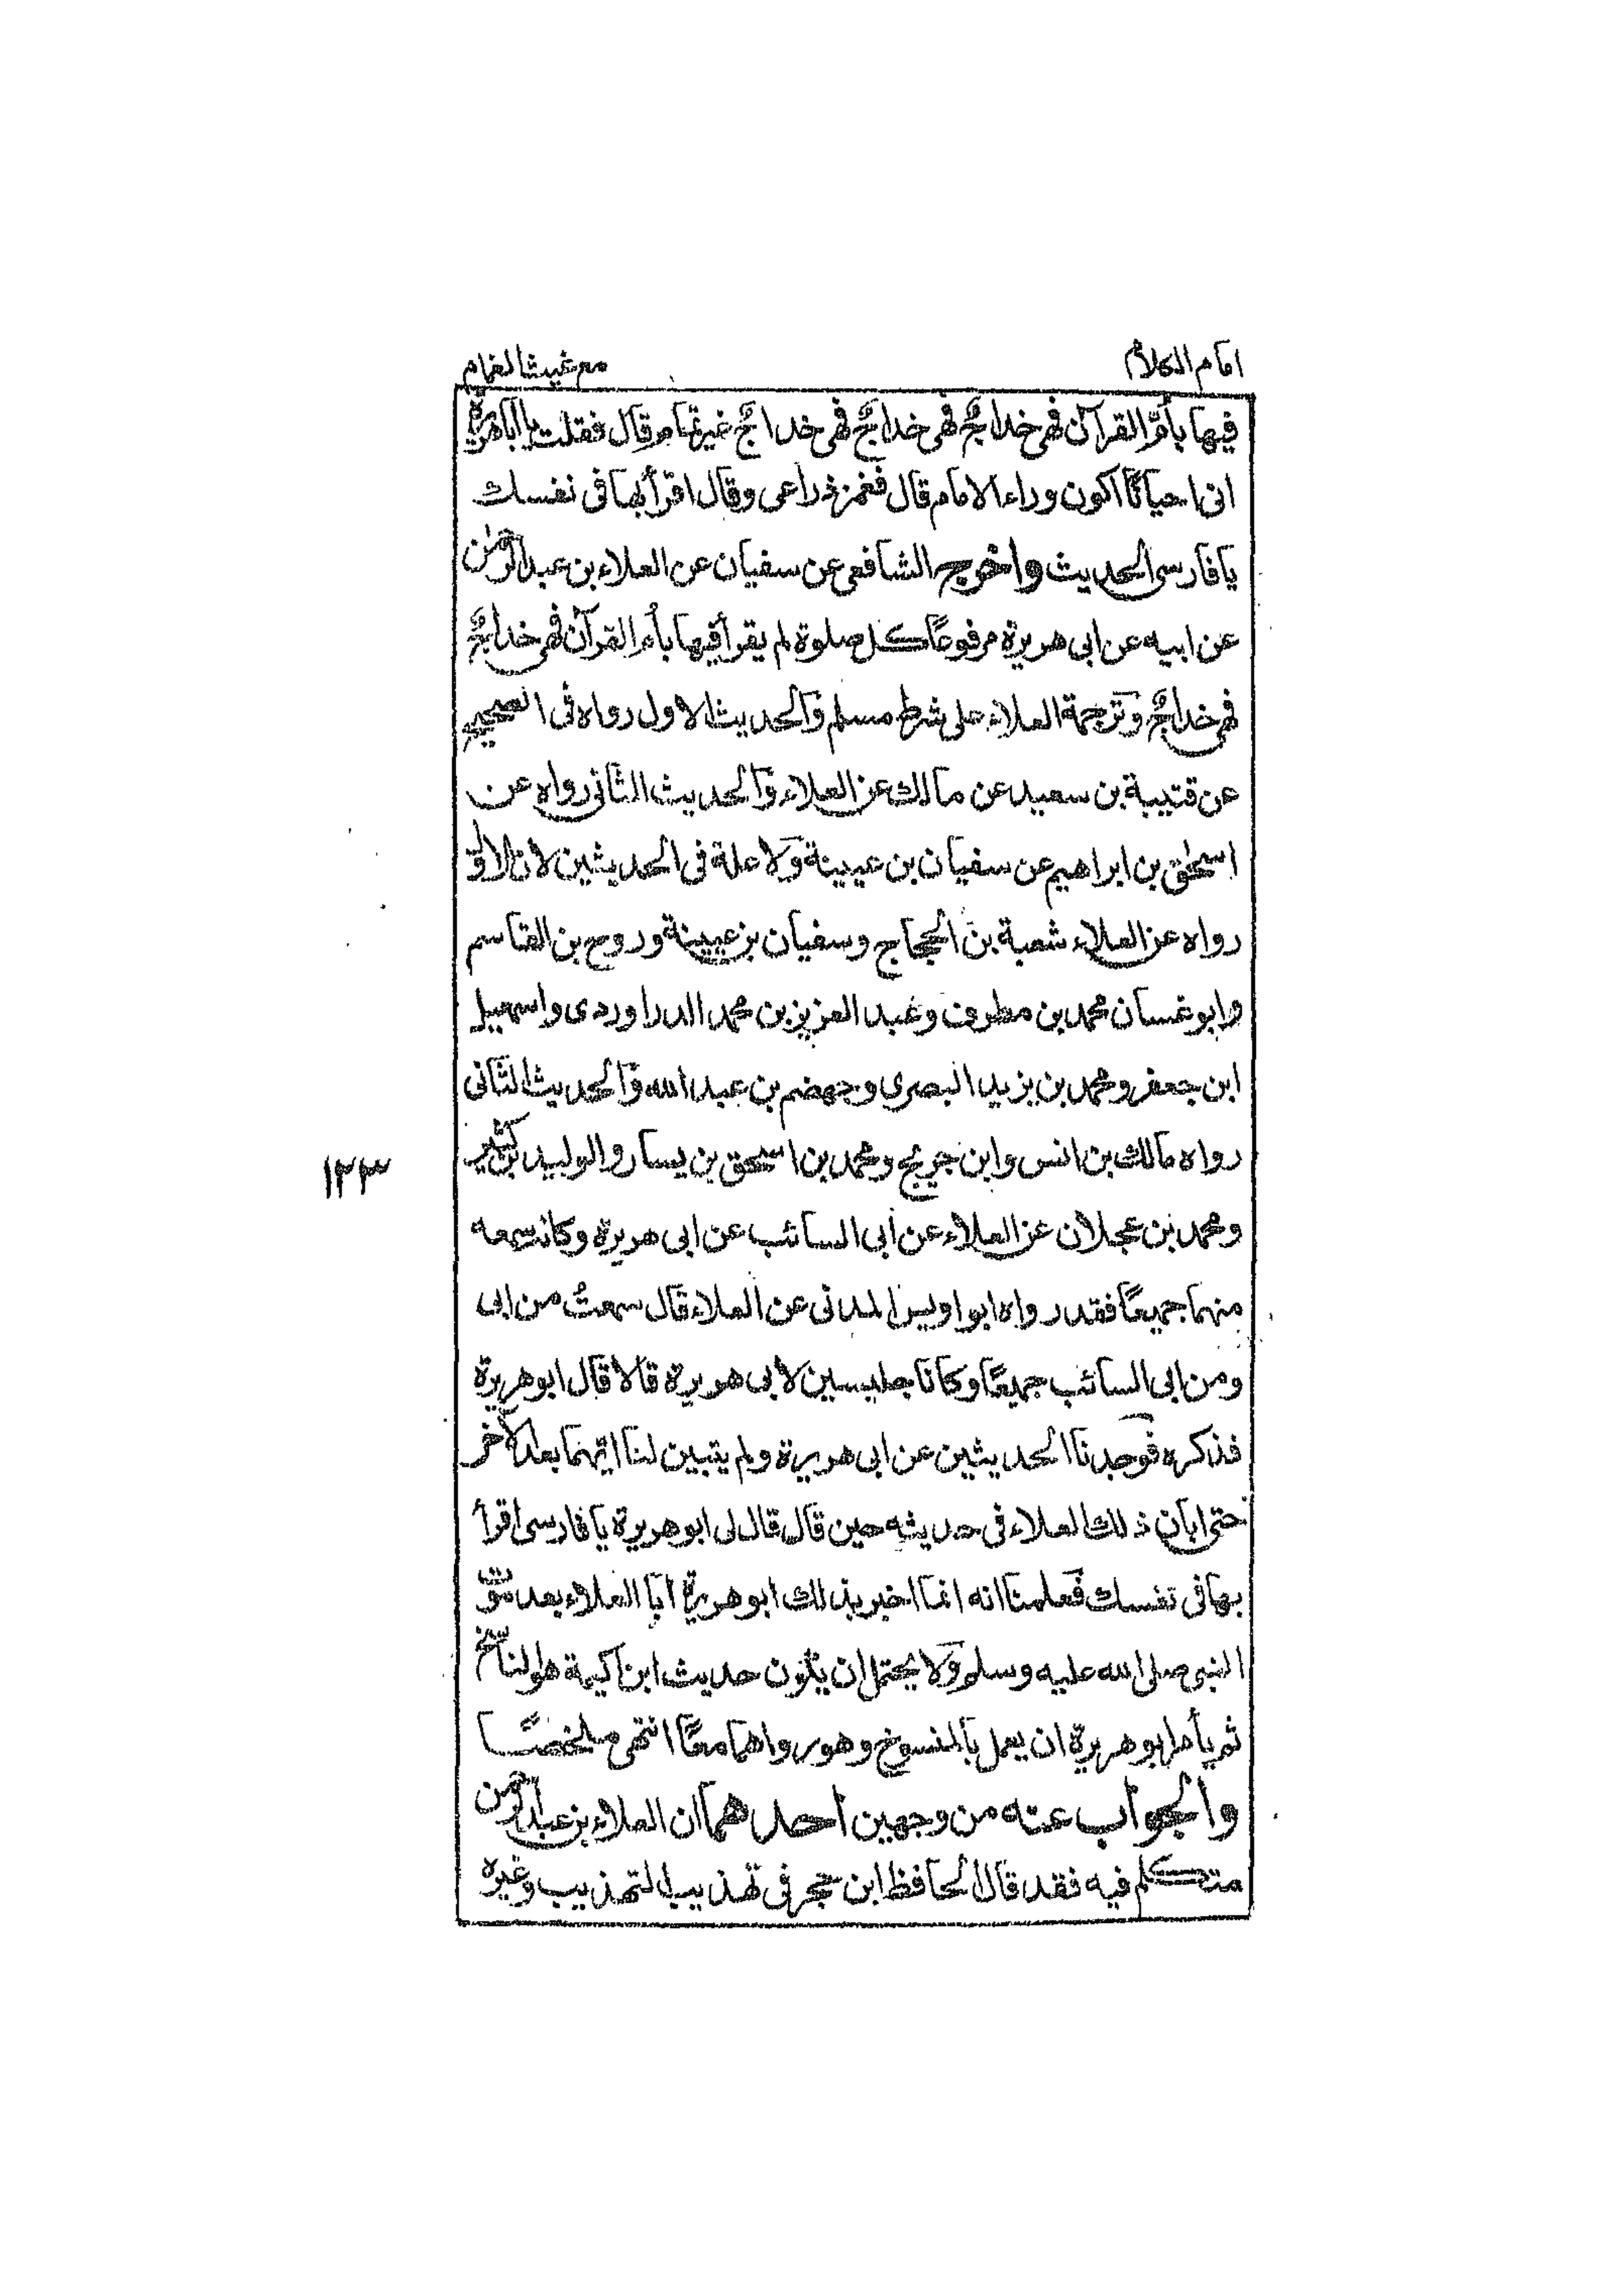 امام الكلام
مع غيث الغمام
فيها بأم القرآن فهى خداجٌ فهى خداجٌ فهى خداجٌ غير تمام قال فقلت يا ابا هريرة
انى احيانًا اكون وراء الامام قال فغمز ذراعى وقال اقرأ بها فى نفسك
يا فارسى الحديث واخرجه الشافعى عن سفيان عن العلاء بن عبد الرحمٰن
عن ابيه عن ابى هريرة مرفوعًا كل صلوة لم يقرأ فيها بأم القرآن فهى خداجٌ
فهى خداجٌ وترجمة العلاء على شرط مسلم والحديث الاول رواه فى الصحيح
عن قتيبة بن سعيد عن مالك عن العلاء والحديث الثانى رواه عن
اسحٰق بن ابراهيم عن سفيان بن عيينة ولا علة فى الحديثين لان الاول
رواه عن العلاء شعبة بن الحجاج وسفيان بن عيينة وروح بن القاسم
وابو غسان محمد بن مطرف وعبد العزيز بن محمد الدراوردى واسمعيل
ابن جعفر ومحمد بن يزيد البصرى وجهضم بن عبد الله والحديث الثانى
رواه مالك بن انس وابن جريج ومحمد بن اسحق بن يسار والوليد بن كثير
ومحمد بن عجلان عن العلاء عن أبى السائب عن ابى هريرة وكانه سمعه
منهما جميعًا فقد رواه ابو اويس المدنى عن العلاء قال سمعتُ من ابى
ومن ابى السائب جميعًا وكانا جليسين لابى هريرة قالا قال ابو هريرة
فذكره فوجدنا الحديثين عن ابى هريرة ولم يتبين لنا ايهما بعد الآخر
حتى ابان ذلك العلاء فى حديثه حين قال قال لى ابو هريرة يا فارسى اقرأ
بها فى نفسك فعلمنا انه انما اخبر بذلك ابو هريرة ابا العلاء بعد موت
النبى صلى الله عليه وسلم ولا يحتمل ان يكون حديث ابن اكيمة هو الناسخ
ثم يأمر ابو هريرة ان يعمل بالمنسوخ وهو رواهما معًا انتهى ملخصًا
والجواب عنه من وجهين احدهما ان العلاء بن عبد الرحمن
متكلم فيه فقد قال الحافظ ابن حجر فى تهذيب التهذيب وغيره
١٢٣